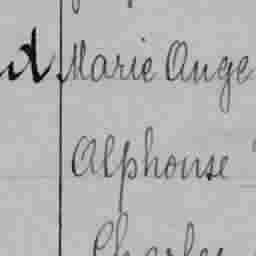 Marie Ange
Alphonse
Charles